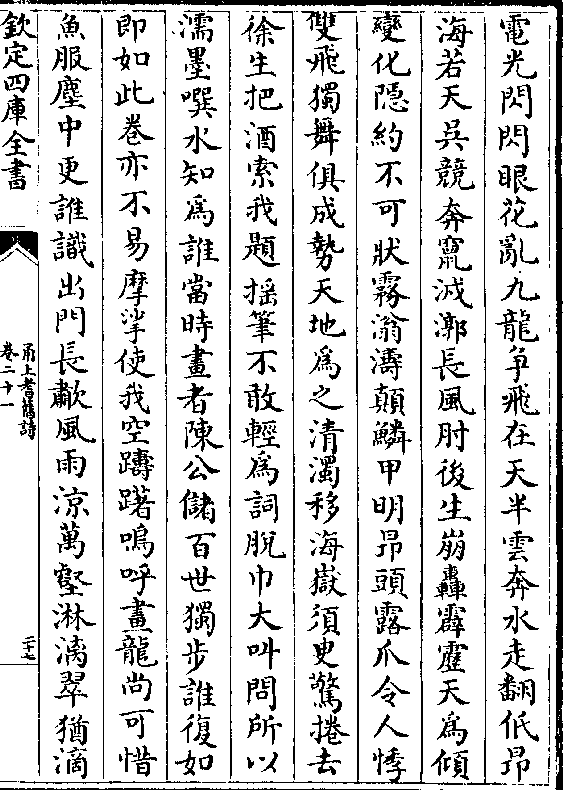 電光閃閃眼花亂九龍争飛在天半雲奔水走翻低昂
海若天吳競奔竄滅漷長風肘後生崩轟霹靂天為傾
變化隠約不可狀霧滃濤顛鱗甲明昂頭露爪令人悸
雙飛獨舞俱成勢天地為之清濁移海嶽須臾驚捲去
徐生把酒索我題揺筆不敢輕為詞脫巾大叫問所以
濡墨噀水知為誰當時畫者陳公儲百世獨步誰復如
即如此巻亦不易摩挲使我空躊躇嗚呼畫龍尚可惜
魚服塵中更誰識出門長歗風雨涼萬壑淋漓翠猶滴
欽定四庫全書
甬上耆舊詩
卷二十一
二十七